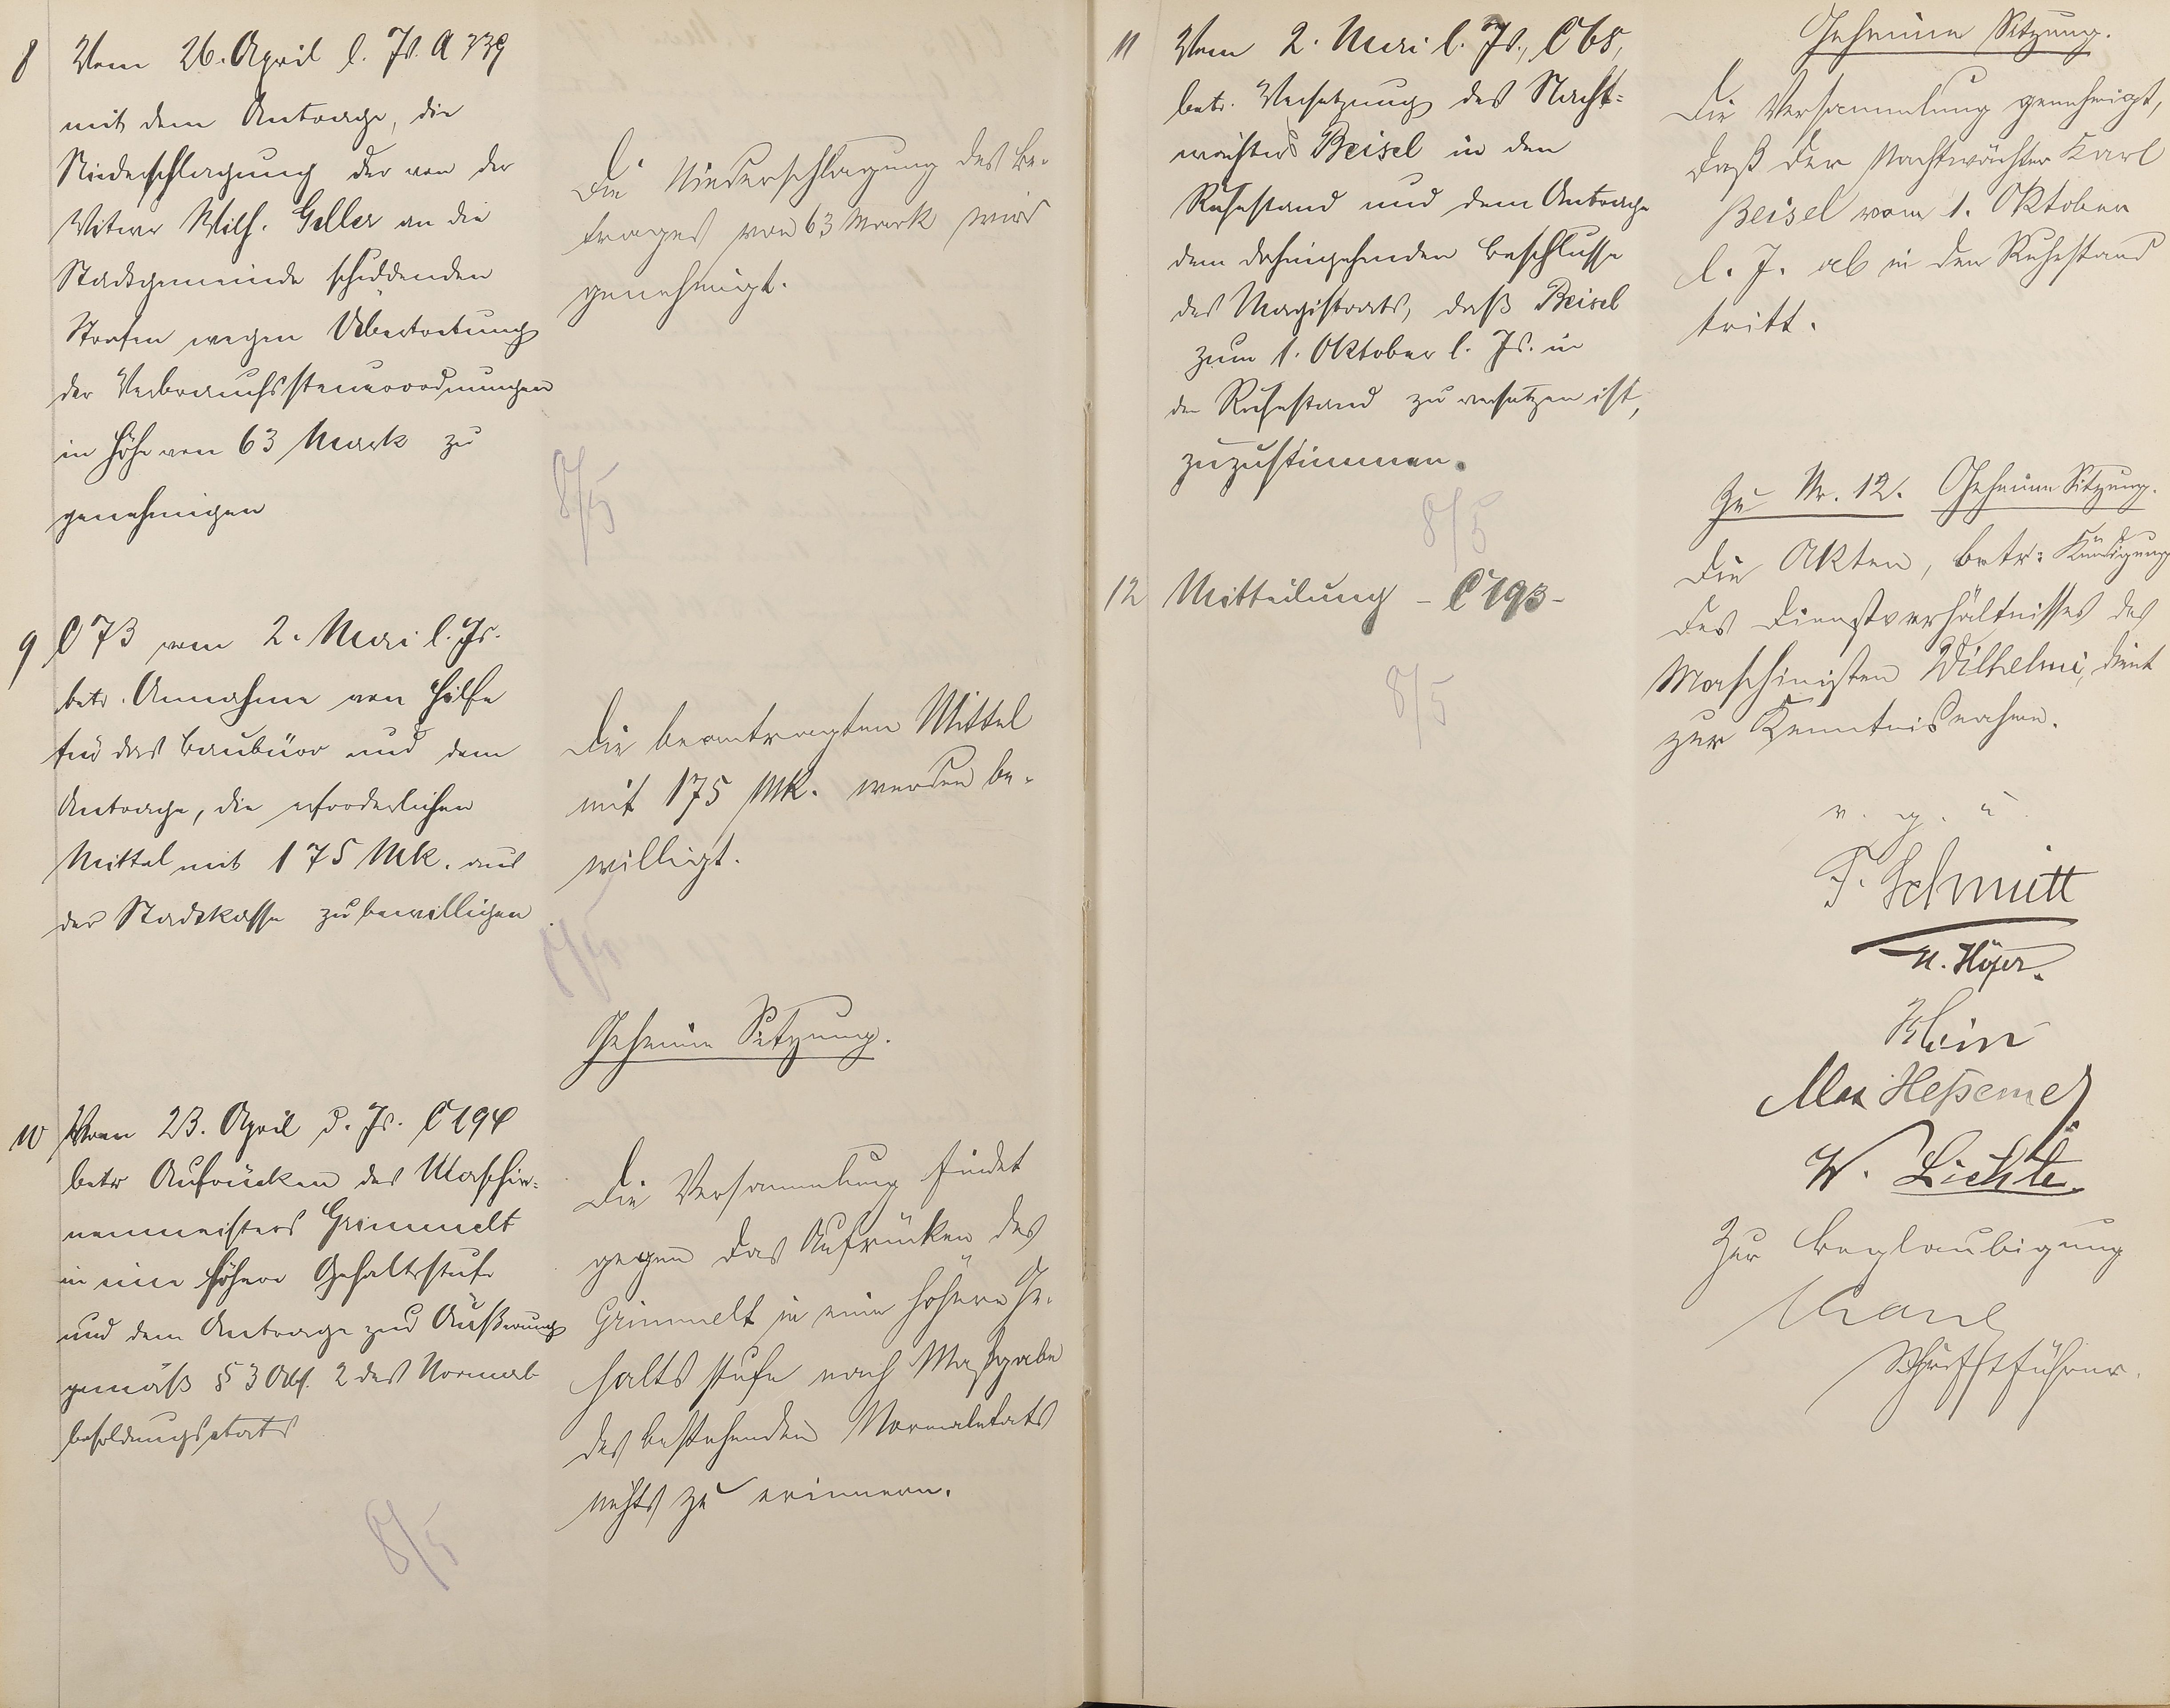 8 Vom 26. April l. Js. A 339
mit dem Antrage, die
Niederschlagung der von der
Witwe Wilh. Geller an die
Stadtgemeinde schuldenden
Strafen wegen Übertretung
der Verbrauchssteuerordnungen
in Höhe von 63 Mark zu
genehmigen
Die Niederschlagung des Be-
trages von 63 Mark wird
genehmigt.
8/5
9 C 73 vom 2. Mai l. Js.
betr. Annahme von Hilfe
für das Baubüro und dem
Antrage, die erforderlichen
Mittel mit 175 Mk. aus
der Stadtkasse zu bewilligen
Die beantragten Mittel
mit 175 Mk. werden be-
willigt.
8/5
10 Vom 23. April d. Js. C 194
betr Aufrücken des Maschin-
nenmeisters Grimmelt
in eine höhere Gehaltsstufe
und dem Antrage zur Äußerung
gemäß § 3 Abs. 2 des Normal-
besoldungsetats
Geheime Sitzung.
Die Versammlung findet
gegen das Aufrücken des
Grimmelt in eine höhere Ge-
haltsstufe nach Maßgabe
des bestehenden Normaletats
nichts zu erinnern.
8/5
11 Vom 2. Mai l. Js., C 68,
betr. Versetzung des Nacht-
wächters Beisel in den
Ruhestand und dem Antrage
dem dahingehenden Beschlusse
des Magistrats, daß Beisel
zum 1. Oktober l. Js. in
den Ruhestand zu versetzen ist,
zuzustimmen.
8/5
Geheime Sitzung.
Die Versammlung genehmigt,
daß der Nachtwächter Karl
Beisel vom 1. Oktober
l. J. ab in den Ruhestand
tritt.
12 Mitteilung – C 193 –
8/5
Zu Nr. 12. Geheime Sitzung.
Die Akten, betr: Kündigung
des Dienstverhältnisses des
Maschinisten Wilhelmi, dient
zur Kenntnisnahme.
v. g. u.
F. Schmitt
N. Höser.
Klein
Max Heßemer
W. Lichte.
Zur Beglaubigung
Schriftführer.